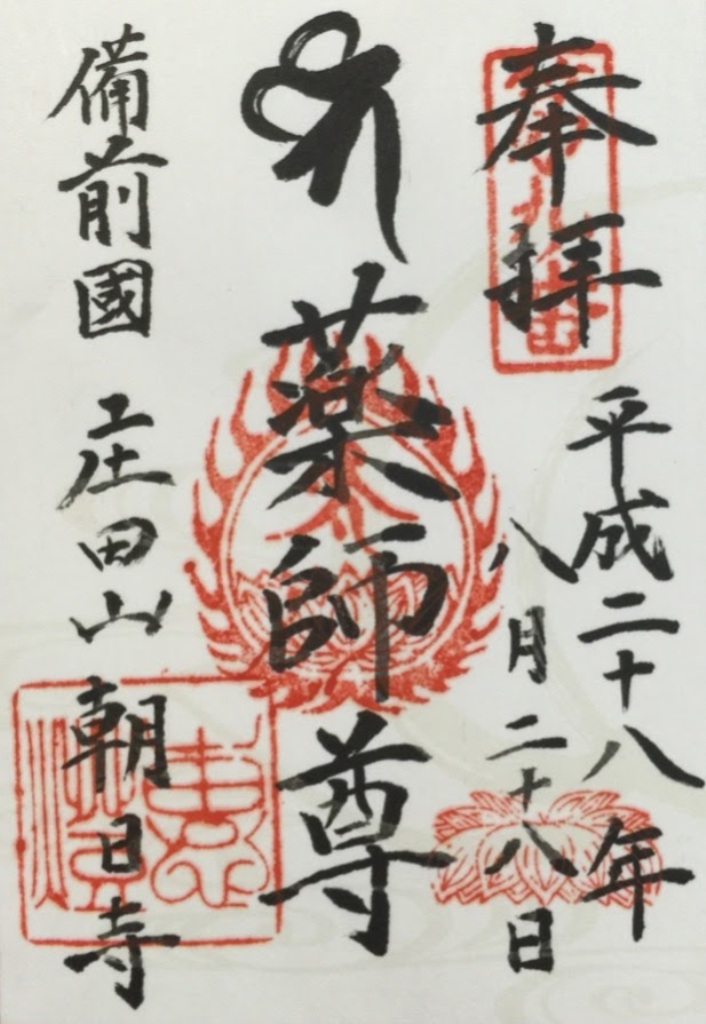 奉拝
平成二十八年
八月二十八日
薬師尊
備前國 庄田山 朝日寺